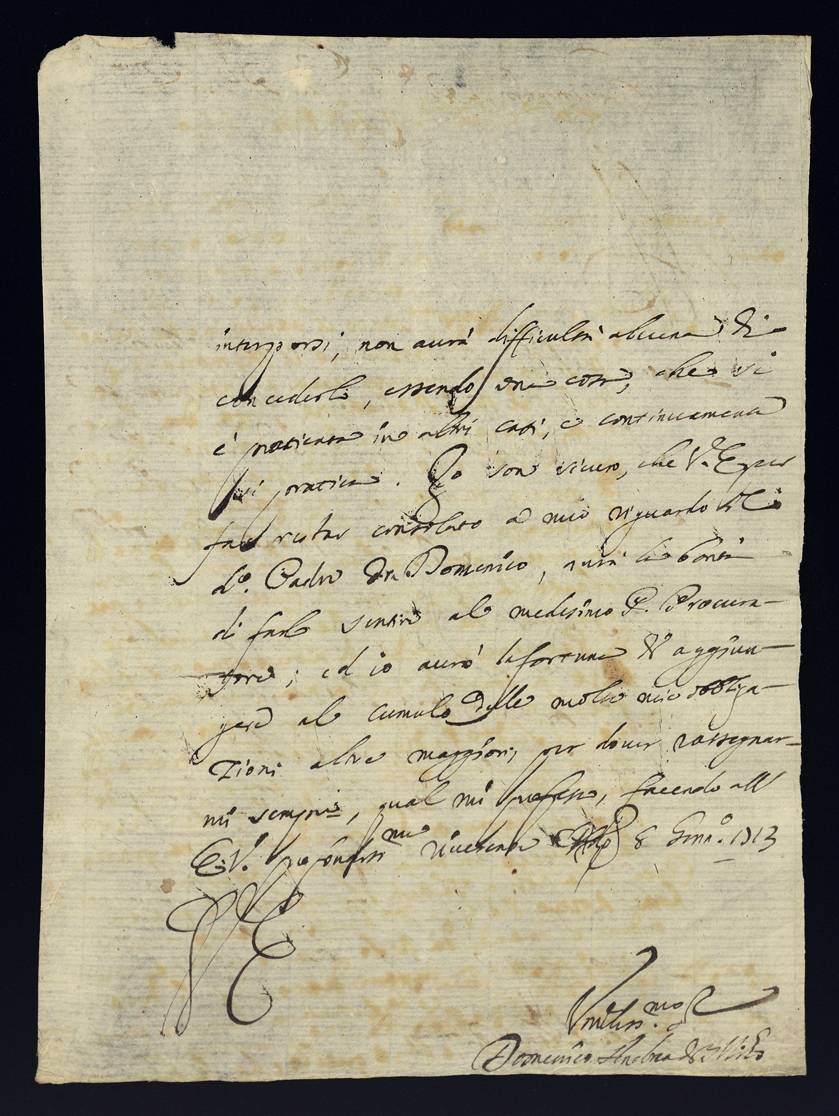 interporsi, non aurà difficultà alcuna di
concederlo, essendo una cosa, che si
è praticata in altri casi, e continuamente
si pratica. Io son sicuro, che V. E. per
far restar consolato a mio riguardo il
do. Padre Fra Domenico, aurà la bontà
di farlo sentire al medesimo P. Procura-
tore; ed io aurò la fortuna di aggiun-
gere al cumulo delle molte mie obbliga-
zioni altre maggiori, per dover rassegnar-
mi sempre, qual mi professo, facendo all'
E. V. profondissma riverenza 8 Genno. 1713
V E
Umiliss.mo
Domenico